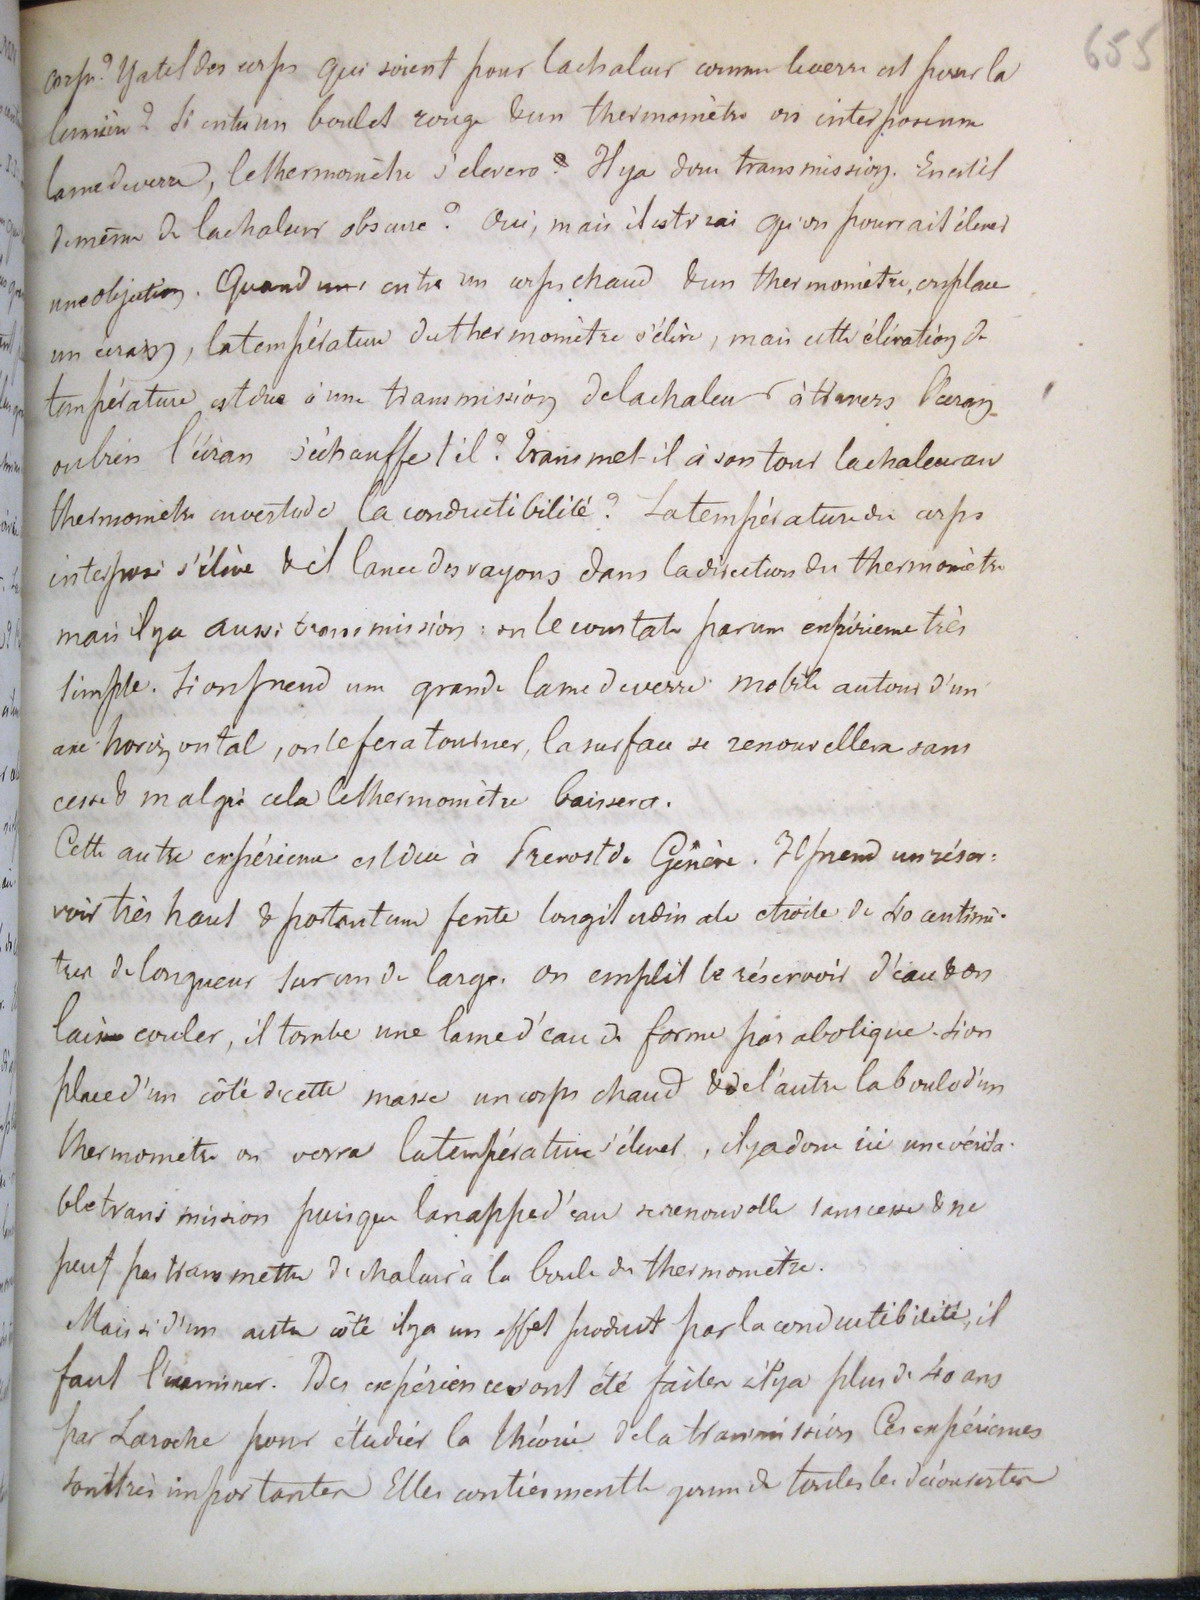 655
corps? Y a t il des corps qui soient pour la chaleur comme le verre est pour la
lumière? Si entre un boulet rouge & un thermomètre on interpose une
lame de verre, le thermomètre s'élevera? Il ya donc transmission. En est il
de même de la chaleur obscure? Oui, mais il est vrai qu'on pourrait élever
une objection. Quand entre un corps chaud & un thermomètre, on place
un écran, la température du thermomètre s'élève, mais cette élévation de
température est due à une transmission de la chaleur à travers l'écran
ou bien l'écran s'échauffe t il? Transmet-il à son tour la chaleur au
thermomètre en vertu de la conductibilité? La température du corps
interposé s'élève & il lance des rayons dans la direction du thermomètre
mais il ya aussi transmission: on le constate par une expérience très
simple. Si on prend une grande lame de verre mobile autour d'un
axe horizontal, on le fera tourner, la surface se renouvellera sans
cesse & malgré cela le thermomètre baissera.
Cette autre expérience est due à Prevost de Genève. Il prend un réser=
voir très haut & portant une fente longitudinale étroite de 40 centimè-
tres de longueur sur un de large. On emplit le réservoir d'eau & on
laisse couler, il tombe une lame d'eau de forme parabolique. Si on
place d'un côté de cette masse un corps chaud & de l'autre la boule d'un
thermomètre on verra la température s'élever, il ya donc ici une vérita-
ble transmission puisque la nappe d'eau se renouvelle sans cesse & ne
peut pas transmettre de chaleur à la boule du thermomètre.
Mais si d'un autre côté il ya un effet produit par la conductibilité, il
faut l'examiner. Des expériences ont été faites il ya plus de 40 ans
par Laroche pour étudier la théorie de la transmission Ces expériences
sont très importantes Elles contiennent le germe de toutes les découvertes